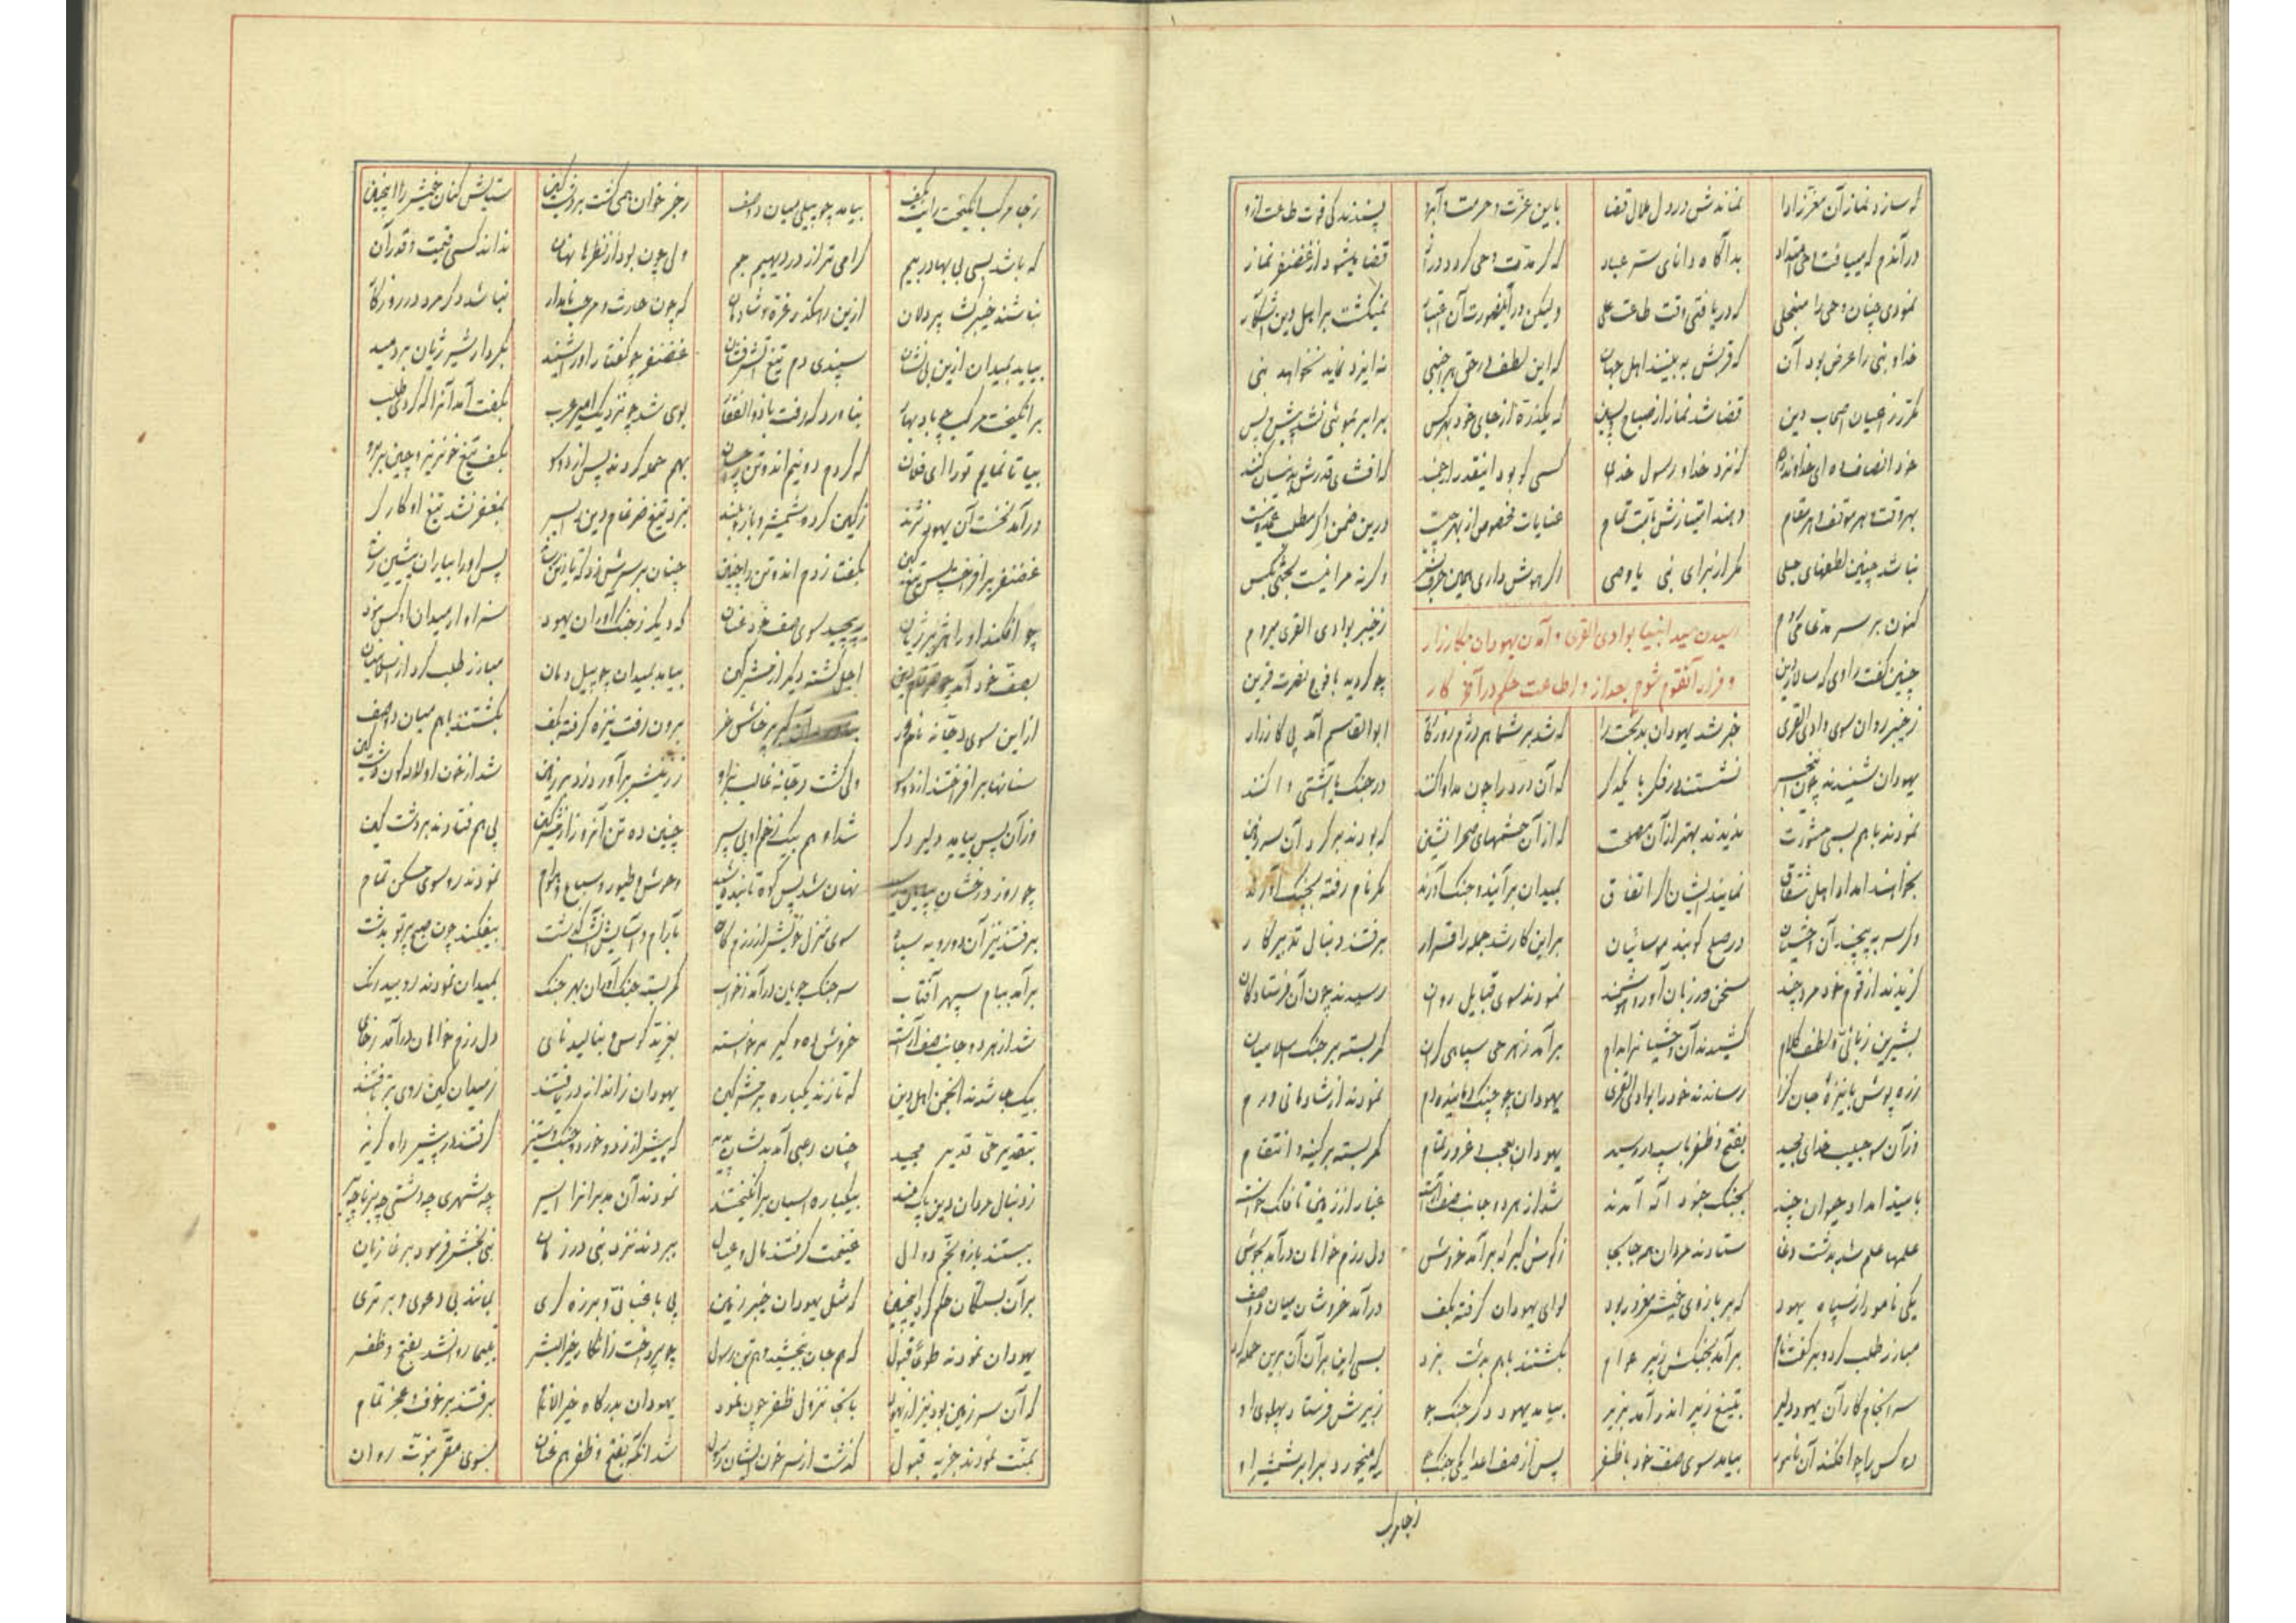 که سازد نماز آن معزز ادا نماندش در دل ملال قضا باین عزت و حرمت و آبرو پسندد کی فوت طاعت ازو
در آندم که مییافت وحی امتداد بد آگاه دانای سر عباد که گر مدت وحی گردد دراز قضا میشود از غضنفر نماز
نمودی چنان وحی را منجلی که دریافتی وقت طاعت علی ولیکن در آنصورت آن نمیگشت بر اهل دین آشکار
خدا و نبی را غرض بود آن که قربش به بینند اهل جهان که این لطف در حق هر اجنبی نه ایزد نماید نخواهد نبی
مکرر ز اعیان اصحاب دین قضا شد نماز از صباح پسین که یکذره از جای خود بهر کس برابر نشد پیش و پس
خود انصاف ده ای خداوند که نزد خدا و رسول خدای کسی کو بود اینقدر که افشای قدرش بدینسان کنند
بهر وقت و هر موقف و هر مقام دهند امتیازش تمام عنایات مخصوص از بهر چیست درین ضمن اگر مطلب عمده نیست
نباشد چنین لطفهای جلی مگر از برای نبی یا وصی اگر هوش داری همین حرف بس وگرنه مرا نیست بحثی بکس
کنون بر سر مدعا میروم ز خیبر بوادی القری میروم
رسیدن سید انبیا بوادی القری و آمدن یهودان بکارزار
و فرار آنقوم شوم بعد از و اطاعت حکم در آخر کار
چنین گفت راوی که سالار دین چو گردید با فوج نصرت قرین
ز خیبر روان سوی وادی القری خبر شد یهودان بدبخت را که شد بر شما هم دژم روزگار ابوالقاسم آمد پی کارزار
یهودان شنیدند چون این خبر نشستند در فکر با یکدگر که آن درد را چون مداوا کنند در جنگ یا آشتی وا کنند
نمودند باهم بسی مشورت ندیدند بهتر از آن مصلحت که از آن حشمهای صحرا نشین که بودند بر گرد آن سرزمین
بخواهند امداد اهل شقاق نمایند ایشان گر اتفاق بمیدان برآیند و جنگ آورند مگر نام رفته بچنگ آورند
وگر سر به پیچند آن در صلح کوبند موسائیان براین کار شد جمله را قرار برفتند دنبال تدبیر کار
گزیدند از قوم خود مرد چند سخن ور زبان آور و هوشمند نمودند سوی قبایل روان رسیدند چون آن فرستادگان
بشیرین زبانی و لطف کلام کشیدند آن وحشیان را بدام برآمد ز هر حی سپاهی گران کمر بسته بر جنگ اسلامیان
زره پوش با نیزه جان گزا رساندند خود را بوادی القری یهودان چو نمودند از شادمانی
وزآن سو حبیب خدای مجید بفتح و ظفر با سپه در رسید یهودان بعجب و غرور تمام کمر بسته بر کینه و انتقام
باسید امداد حیوان چند بجنگ جنود اله آمدند شد از هر دو جانب صف آراست غبار از زمین تا فلک خواست
علمها علم شد بدشت وغا ستادند مردان همه جا بجا ز کوس کبر که برآمد خروش دل رزم خواهان درآمد بجوش
یکی نامور از سپاه یهود که بر بازوی خویش مغرور بود لوای یهودان گرفته بکف درآمد خروشان میان دو صف
مبارز طلب کرد و برگفت نام برآمد بجنگش زبیر عوام بگشتند باهم بدشت نبرد بسی این بر آن آن برین حمله کرد
سرانجام کار آن یهود دلیر بتیغ زبیر اندر آمد بزیر بیامد یهود دگر جنگ جو زبیرش فرستاد پهلوی او
دو کس را چو افکند آن نامور بیامد سوی صف خود با ظفر پس از صف اعدا یکی جنگجو که میخورد برابر شمشیر او
ز جا مرکب
ز جا مرکب انگیخت رایت بکف بیامد چو پیلی میان دو صف رجز خوان همی گشت بر دشت کین ستایش کنان خویش را اینچنین
که باشد بسی بی بهادر بیم گرامی تر از در دیهیم جم ولی چون بود از نظرها نهان نداند کسی قیمت و قدر آن
نباشند خیبر پردلان ازین رهگذر غره و شادمان که چون حارث و مرحب نامدار نباشد دگر مرد در روزگار
بیاید بمیدان ازین بی نشان ببیند دم تیغ آتش فشان غضنفر چو گفتار او را شنید بکردار شیر ژیان بردمید
برانگیخت مرکب چو باد بهار نیاورد که رفت با ذوالفقار بوی شد چو نزدیک امیر عرب بگفت آمد آنرا که کردی طلب
بیا تا نمایم تو را ای فلان که کردم دو نیم اندو تن بهم حمله کردند پس از دو سو بکف تیغ خونریز و چین بر ابرو
درآمد نخست آن یهود نژند ز کین کرد شمشیر و بازو بلند بزد تیغ ضرغام دین را بسر بمغفر نشد تیغ او کارگر
غضنفر برافراخت پس تیغ کین بگفتا زدم اندو تن را چنین چنان بر سرش زد که تا پس او را بیاران پیشین رساند
چو افکند او را هژبر ژیان بپیچید سوی صف خود عنان که دیگر ز جنگ آوران یهود سزاوار میدان او کس نبود
بصف خود آمد چو ضرغام دین اجل گشته دیگر از خشم کین بیامد بمیدان چو پیل دمان مبارز طلب کرد از اسلامیان
ازاین سوی دجانه نامور پرخاش خر برون رفت نیزه گرفته بکف بگشتند باهم میان دو صف
سنانها برافراختند از دو سو ولی گشت دجانه غالب برو ز زینش برآورد و زد بر زمین شد از خون او لاله گون دشت کین
وزآن پس بیامد دلیر دگر شد او هم بیک زخم او پی سپر چنین ده تن آنروز از کین پی هم فتادند بر دشت کین
چو روز درخشان بپایان رسید نهان شد پس کوه تابنده شید وحوش و طیور و سباع و هوام نمودند رو سوی مسکن تمام
برفتند نیز آن دو رویه سپاه سوی منزل خویش از رزمگاه بآرام و آسایش آنشب گذشت بیفکند چون صبح پرتو بدشت
برآمد ببام سپهر آفتاب سر جنگ جویان درآمد ز خواب کمر بسته جنگ آوران بهر جنگ بمیدان نمودند رو بیدرنگ
شد از هر دو جانب صف آراسته خروش ده و گیر برخواسته بغرید کوس و بنالید نای دل رزم خواهان درآمد ز جای
بیک جا شدند انجمن اهل دین که تازند یکباره بر کین یهودان ز اندازه دریافتند ز میدان کین روی برتافتند
بتقدیر حی قدیر مجید چنان رعبی آمد بدیشان پدید که پیش از زد و خورد و جنگ و ستیز گرفتند در پیش راه گریز
ز دنبال مردان دین پاک بیکباره اسبان برانگیختند نمودند آن مدبرانرا اسیر چه شهری چه دشتی چه برنا چه پیر
ببستند بازو بخم دوال غنیمت گرفتند مال و عیال ببردند نزد نبی در زمان نبی بخشش فرمود بر زیان
بر آن بستگان حکم کرد اینچنین که مثل یهودان خیبر زمین پی باغبانی و برزه گری بمانند بی دعوی و برتری
یهودان نمودند طوعا قبول که هم جان ببخشید و هم تن رسول چو پرداخت زانکار خیرالبشر بتیما روانشد بفتح و ظفر
که آن سرزمین بود نیز از یهود بآنجا نزول ظفر چون نمود یهودان بدرگاه خیرالانام برفتند بر خوف و عجز تمام
بمنت نمودند جزیه قبول گذشت از سر خون ایشان رسول شد آنگه بفتح و ظفر هم عنان بسوی مقر نبوت روان